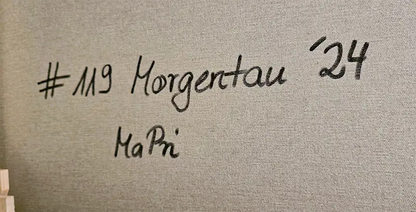 #119 Morgentau '24
MaPri